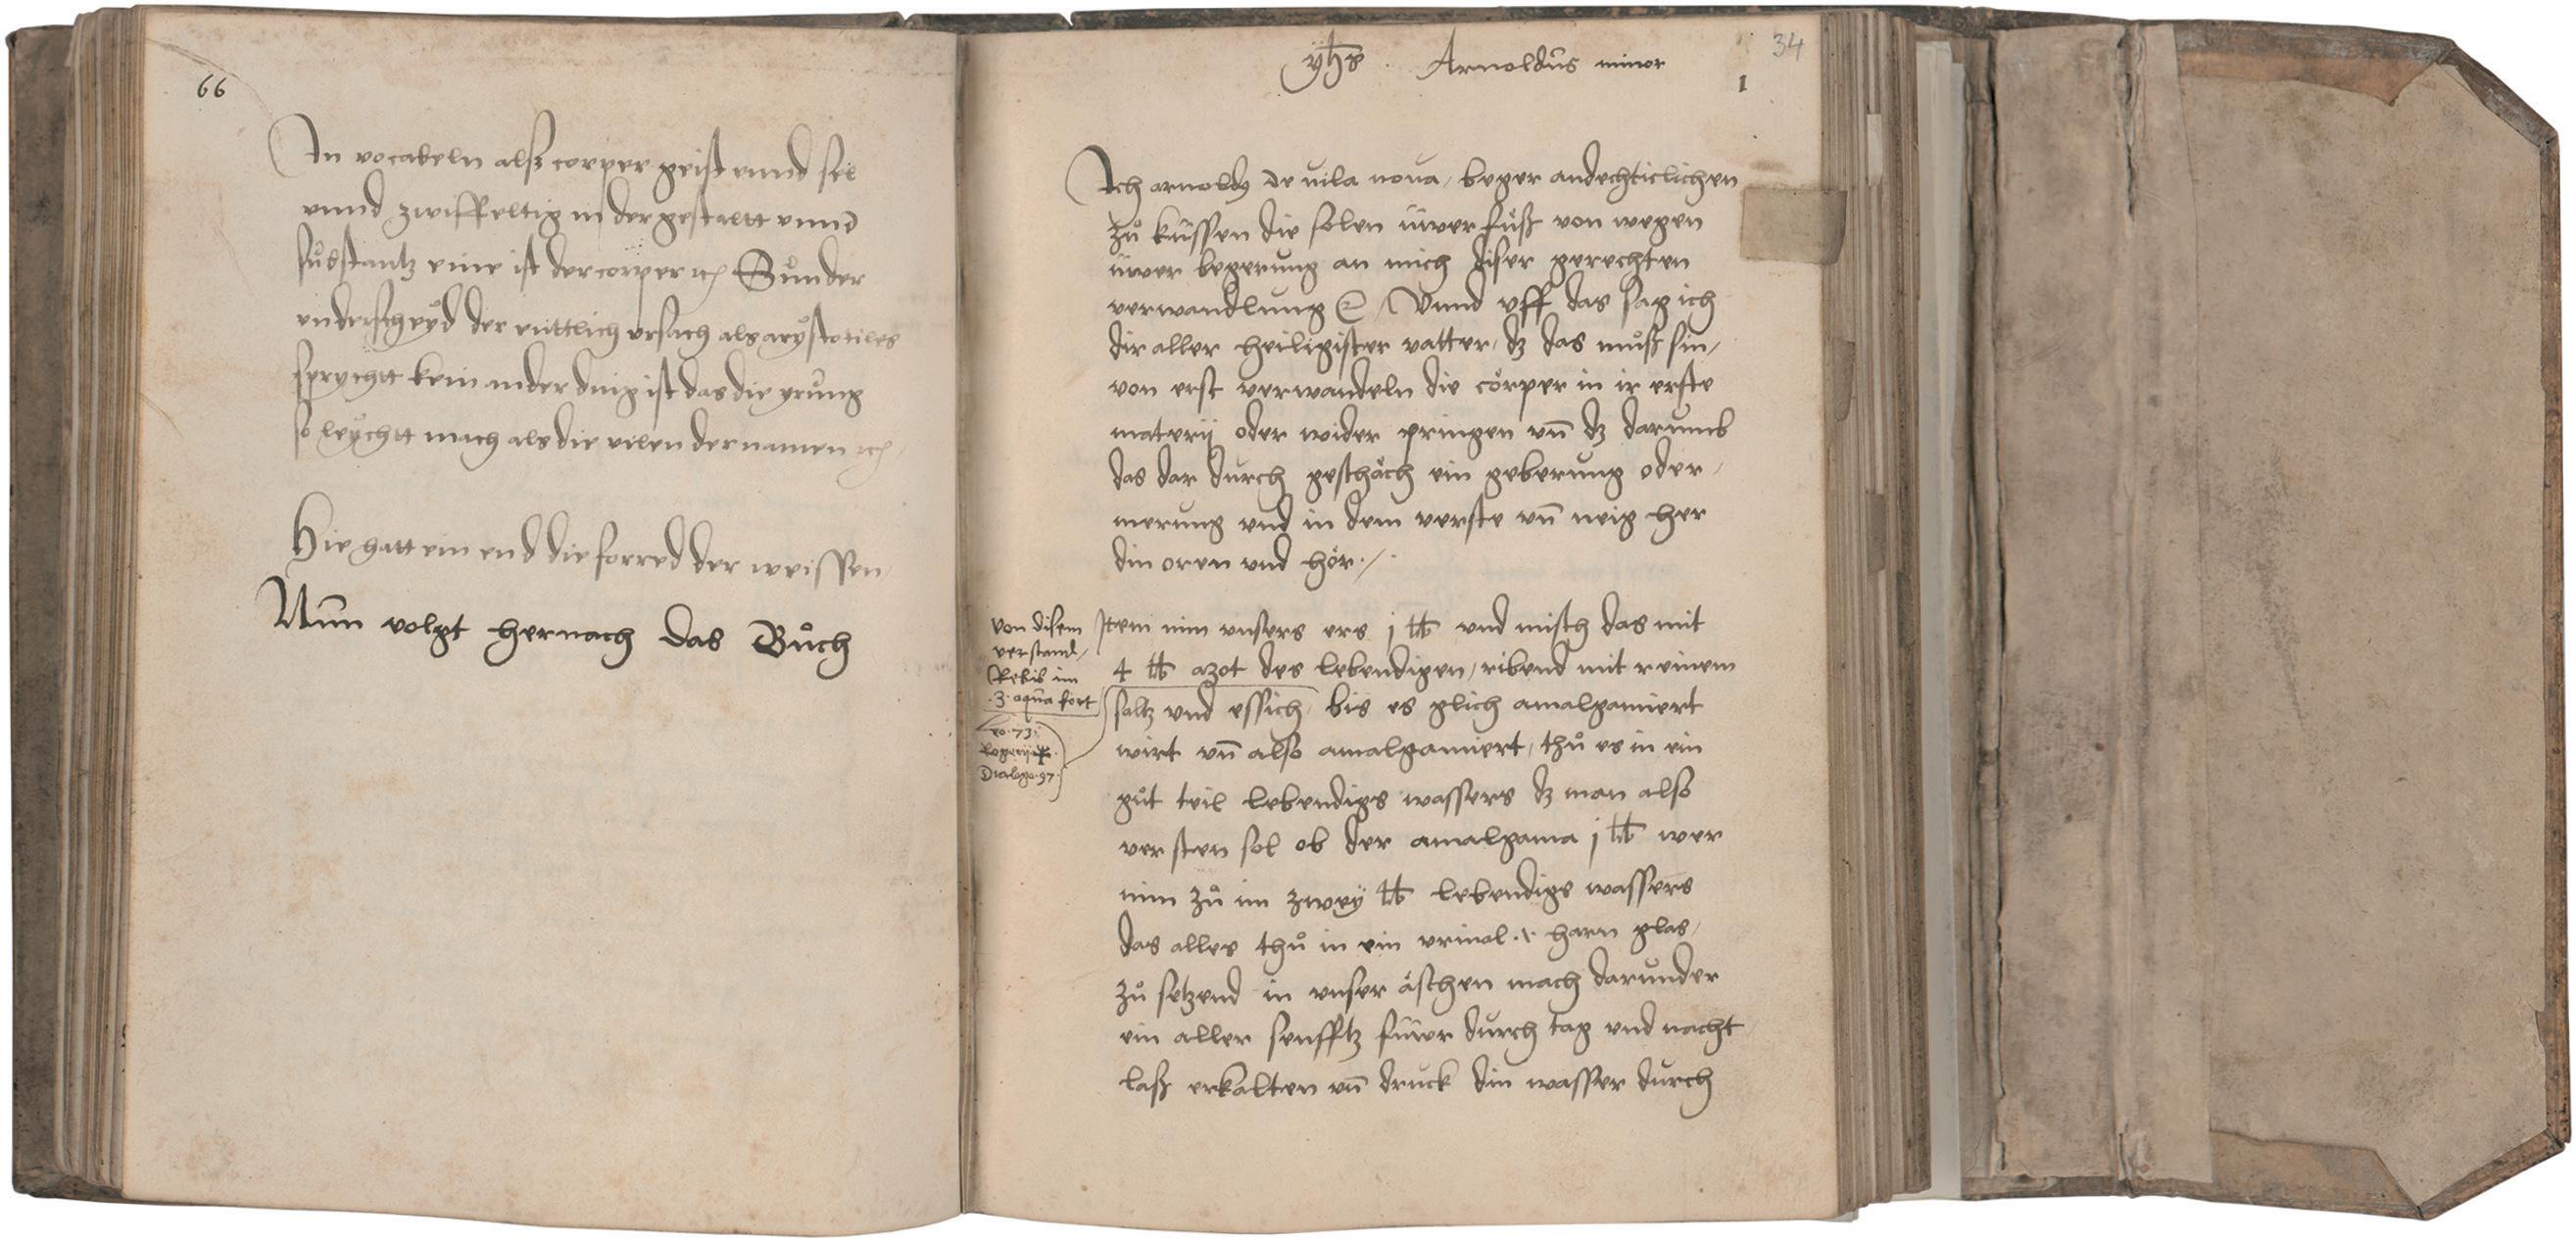 66
In vocabeln alß corper geist vnnd sel
vnnd zwiffeltig in der gestaltt vnnd
sůbstantz eine ist der corper Sůnder
vnderscheyd der mittlich vrsach als arystotiles
sprychtt kein ander ding ist das die yrung
so leychtt mach als die vilen der namen
Hie hatt ein end die forred der weissen
Nun volgt hernach das Bůch
34
yhs . Arnoldus minor
1
Ich arnoldus de uila noua, beger andechticlichen
zů küssen die solen üwer fůß von wegen
üwer begerung an mich diser gerechten
verwandlung Vnnd vff das sag ich
dir aller heiligister vatter, dz das můß sin,
von erst verwandeln die cörper in ir erste
materij oder wider pringen vn̄ dz darumb
das dar durch geschäch ein geberung oder,
merung vnd in dem verste vn̄ neig her
din oren vnd hör./.
von disem
verstand,
Rebis im
.3. aqua fort
fo.73.
Rogerij
Dialogo.97.
Item nim vnsers ers j ℔ vnd misch das mit
4 ℔ azot des lebendigen, ribend mit reinem
saltz vnd essich bis es glich amalgamiert
wirt vn̄ also amalgamiert, thů es in ein
gůt teil lebendigs wassers dz man also
versten sol ob der amalgama j ℔ wer
nim zů im zwey ℔ lebendigs wassers
das alles thů in ein vrinal harn glas,
zů setzend in vnser äschen mach darunder
ein aller senfftz füwr durch tag vnd nacht
laß erkalten vn̄ druck din wasser durch